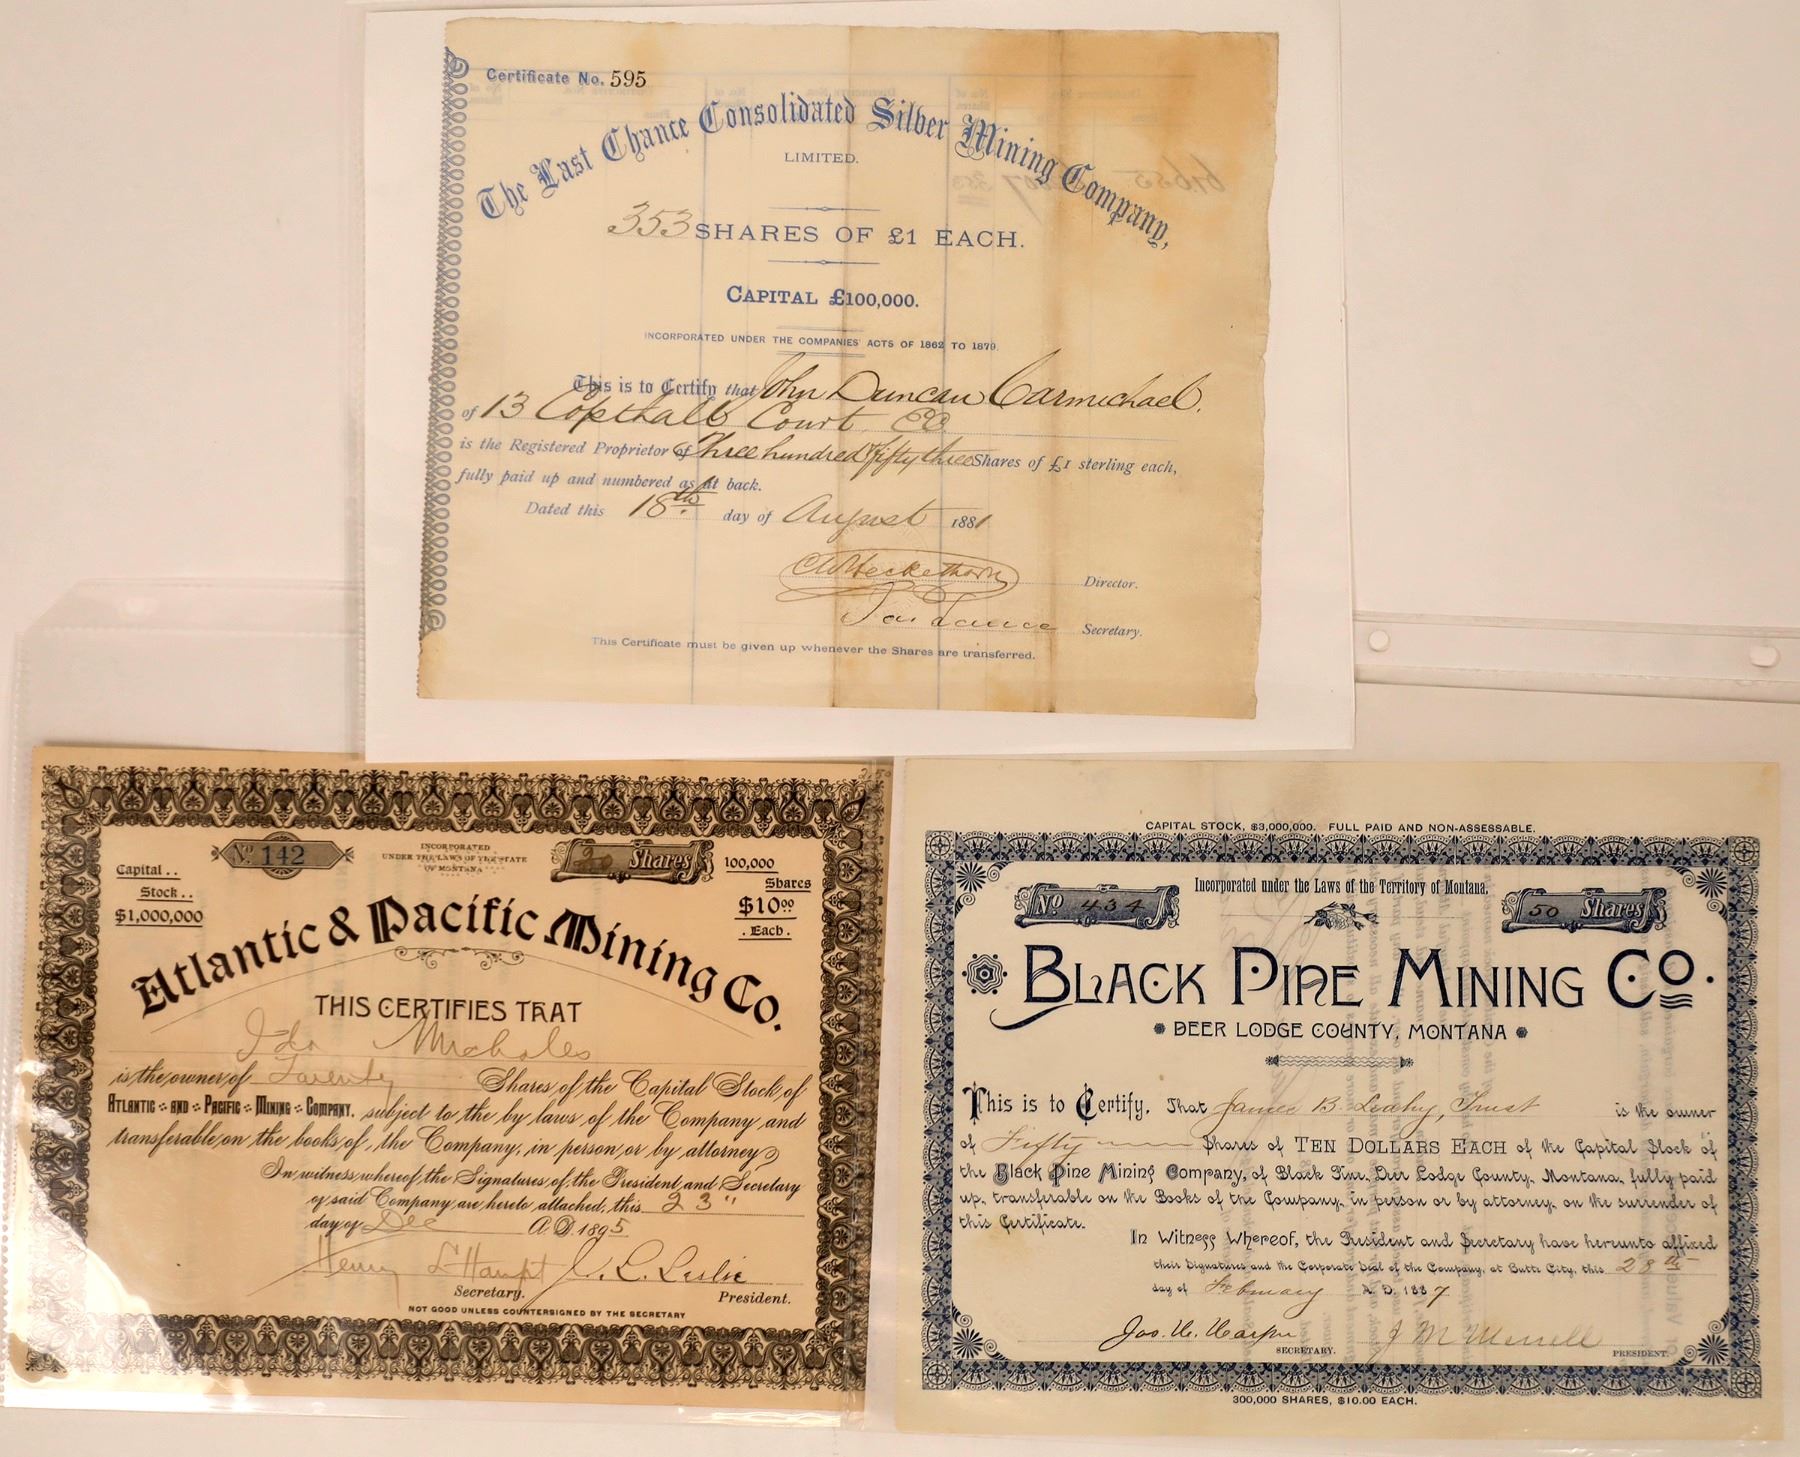 Certificate No. 595
The Last Chance Consolidated Silver Mining Company,
LIMITED.
353 SHARES OF £1 EACH.
CAPITAL £100,000.
INCORPORATED UNDER THE COMPANIES' ACTS OF 1862 TO 1879.
This is to Certify that John Duncan Carmichael.
of 13 Copthall Court EC
is the Registered Proprietor of Three hundred & fifty three Shares of £1 sterling each,
fully paid up and numbered as at back.
Dated this 18th day of August 1881
Director.
Secretary.
This Certificate must be given up whenever the Shares are transferred.
No 142
INCORPORATED
UNDER THE LAWS OF THE STATE
OF MONTANA
20 Shares
Capital..
Stock..
$1,000,000
100,000
Shares
$10.00
.Each.
Atlantic & Pacific Mining Co.
THIS CERTIFIES THAT
Ida Nicholes
is the owner of Twenty Shares of the Capital Stock of
ATLANTIC AND PACIFIC MINING COMPANY, subject to the by laws of the Company and
transferable on the books of the Company, in person or by attorney
In witness whereof the Signatures of the President and Secretary
of said Company are hereto attached, this 23"
day of Dec A.D. 1895
Henry L Haupt J. L. Leslie
Secretary. President.
NOT GOOD UNLESS COUNTERSIGNED BY THE SECRETARY
CAPITAL STOCK, $3,000,000. FULL PAID AND NON-ASSESSABLE.
No 434
Incorporated under the Laws of the Territory of Montana.
50 Shares
BLACK PINE MINING CO.
DEER LODGE COUNTY, MONTANA
This is to Certify, That James B. Leahy, Trust is the owner
of Fifty Shares of TEN DOLLARS EACH of the Capital Stock of
the Black Pine Mining Company, of Black Pine, Deer Lodge County, Montana, fully paid
up, transferable on the Books of the Company in person or by attorney on the surrender of
this Certificate.
In Witness Whereof, the President and Secretary have hereunto affixed
their Signatures and the Corporate Seal of the Company, at Butte City, this 28th
day of February A.D. 1887
SECRETARY. PRESIDENT.
300,000 SHARES, $10.00 EACH.